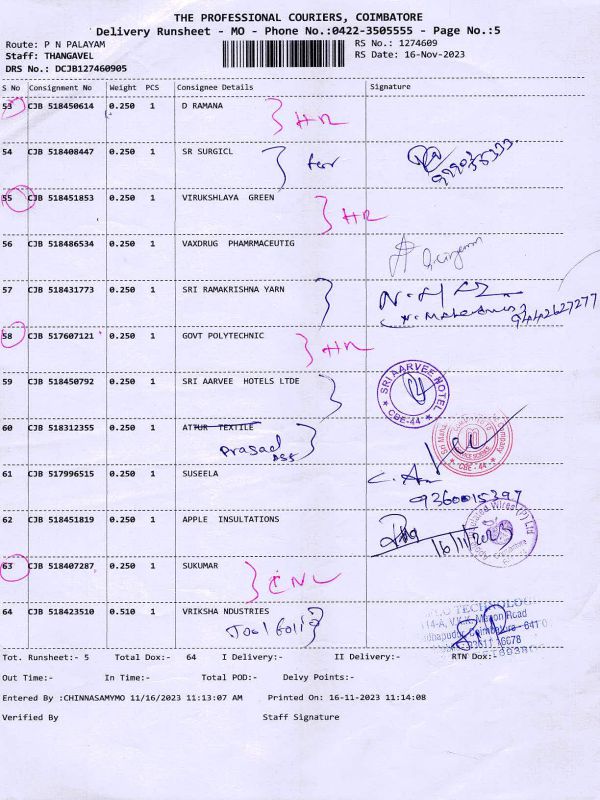 THE PROFESSIONAL COURIERS, COIMBATORE
Delivery Runsheet - MO - Phone No.:0422-3505555 - Page No.:5
Route: P N PALAYAM RS No.: 1274609
Staff: THANGAVEL RS Date: 16-Nov-2023
DRS No.: DCJB127460905
S No Consignment No Weight PCS Consignee Details Signature
53 CJB 518450614 0.250 1 D RAMANA HR
54 CJB 518408447 0.250 1 SR SURGICL
55 CJB 518451853 0.250 1 VIRUKSHLAYA GREEN HR
56 CJB 518486534 0.250 1 VAXDRUG PHAMRMACEUTIG
57 CJB 518431773 0.250 1 SRI RAMAKRISHNA YARN
9442627277
58 CJB 517607121 0.250 1 GOVT POLYTECHNIC HR
59 CJB 518450792 0.250 1 SRI AARVEE HOTELS LTDE SRI AARVEE HOTEL CBE-44
60 CJB 518312355 0.250 1 ATTUR TEXTILE
Prasad CBE - 44
61 CJB 517996515 0.250 1 SUSEELA
9360015397
62 CJB 518451819 0.250 1 APPLE INSULTATIONS 16/11/2023
63 CJB 518407287 0.250 1 SUKUMAR
64 CJB 518423510 0.510 1 VRIKSHA NDUSTRIES
Tot. Runsheet:- 5 Total Dox:- 64 I Delivery:- II Delivery:- RTN Dox:
Out Time:- In Time:- Total POD:- Delvy Points:-
Entered By :CHINNASAMYMO 11/16/2023 11:13:07 AM Printed On: 16-11-2023 11:14:08
Verified By Staff Signature